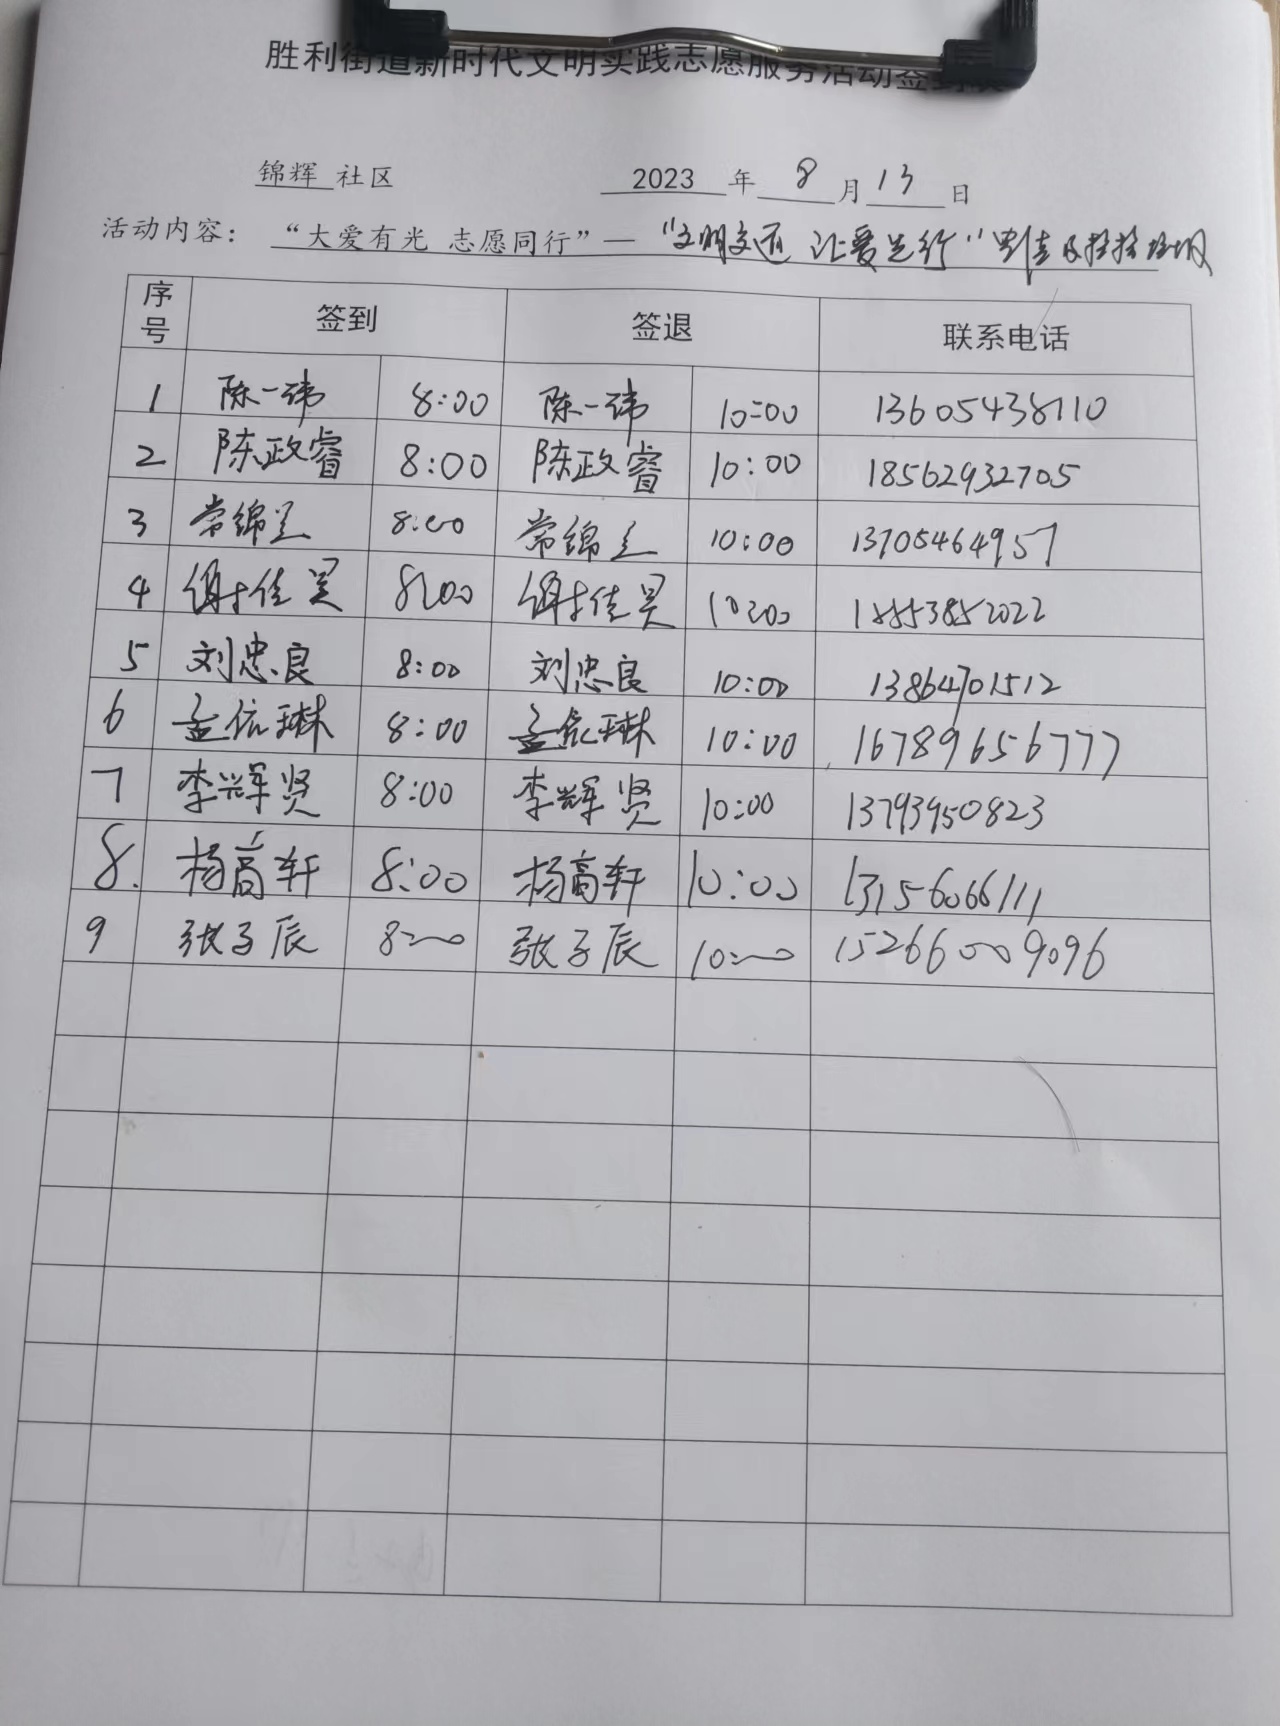 胜利街道新时代文明实践志愿服务活动签到表
锦辉 社区 2023 年 8 月 13 日
活动内容： “大爱有光 志愿同行”—“文明交通 让爱先行” 及捡拾垃圾
序号 签到 签退 联系电话
1 陈一玮 8:00 陈一玮 10:00 13605438110
2 陈政睿 8:00 陈政睿 10:00 18562932705
3 常锦 8:00 常锦 10:00 13705464957
4 谢佳昊 8:00 谢佳昊 10:00 18853852022
5 刘忠良 8:00 刘忠良 10:00 13864701512
6 孟依琳 8:00 孟依琳 10:00 16789656777
7 李辉贤 8:00 李辉贤 10:00 13793950823
8. 杨高轩 8:00 杨高轩 10:00 13156066111
9 张子辰 8:00 张子辰 10:00 15266009096